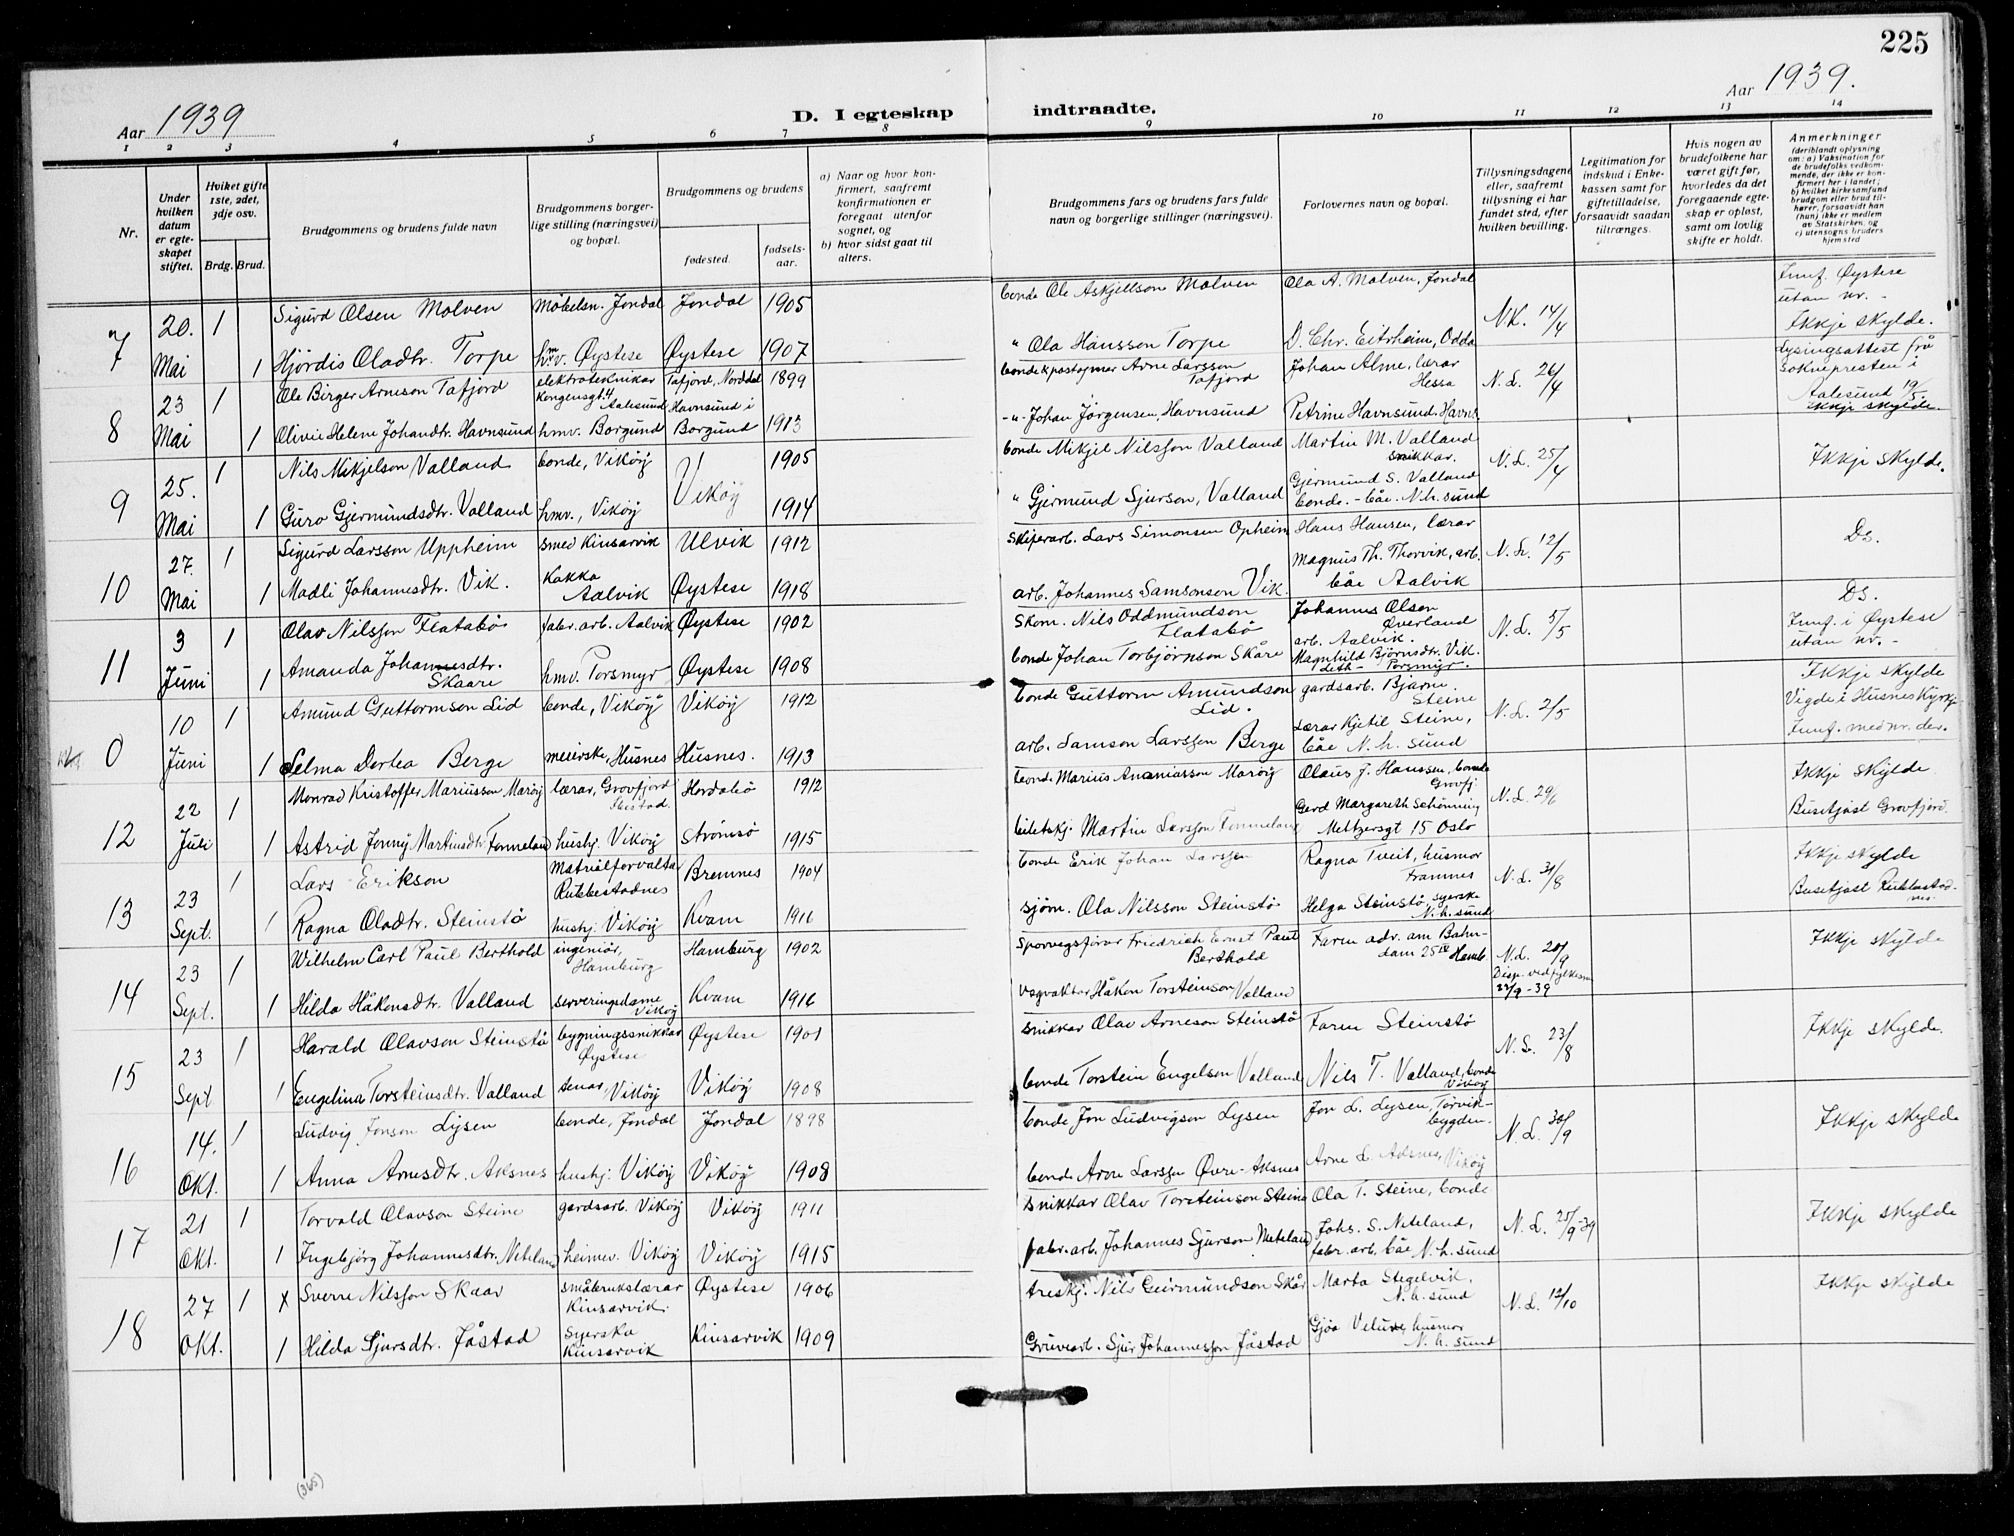 225
Aar 1939
D. I egteskap indtraadte.
Aar 1939.
1 2 3 4 5 6 7 8 9 10 11 12 13 14
Nr.
Under hvilken datum er egteskapet stiftet.
Hviket gifte 1ste, 2det, 3dje osv.
Brdg. Brud.
Brudgommens og brudens fulde navn
Brudgommens borgerlige stilling (næringsvei) og bopæl.
Brudgommens og brudens
fødested.
fødselsaar.
a) Naar og hvor konfirmert, saafremt konfirmationen er foregaat utenfor sognet, og
b) hvor sidst gaat til alters.
Brudgommens fars og brudens fars fulde navn og borgerlige stillinger (næringsvei).
Forlovernes navn og bopæl.
Tillysningsdagene eller, saafremt tillysning ei har fundet sted, efter hvilken bevilling.
Legitimation for indskud i Enkekassen samt for giftetilladelse, forsaavidt saadan tiltrænges.
Hvis nogen av brudefolkene har været gift før, hvorledes da det foregaaende egteskap er opløst, samt om lovlig skifte er holdt.
Anmerkninger
(deriblandt oplysning om: a) Vaksination for de brudefolks vedkommende, der ikke er konfirmert her i landet; b) hvilket kirkesamfund brudgom eller brud tilhører, forsaavidt han (hun) ikke er medlem av Statskirken, og c) utensogns bruders hjemsted
7 20. Mai 1 Sigurd Olsen Molven Möbelsn. Jondal Jondal 1905 bonde Ole Askjellson Molven Ola A. Molven, Jondal N.L. 14/4 Innf. Øystese utan nr. -
1 Hjördis Oladtr. Torpe hmv. Øystese Øystese 1907 " Ola Hansson Torpe D. Chr. Eitrheim, Odda Ikkje skylde.
8 23 Mai 1 Ole Birger Arneson Tafjord elektroteknikar Kongensgt. 4 Aalesund Tafjord, Norddal 1899 bonde & postopnar Arne Larsson Tafjord Johan Alme, lærar Hessa N.L. 26/4 Lysingsattest frå Sokнepresten i Aalesund 19/5
1 Olivie Helene Johandtr. Havnsund hmv. Borgund Havnsund i Borgund 1913 -"- Johan Jörgensen, Havnsund Petrine Havnsund, Havns. Ikkje skylde.
9 25. Mai 1 Nils Mikjelson Valland bonde, Vikøy Vikøy 1905 bonde Mikjel Nilsson Valland Martin M. Valland snikkar. N.L. 25/4 Ikkje skylde.
1 Guro Gjermundsdtr. Valland hmv., Vikøy 1914 " Gjermund Sjurson, Valland Gjermund S. Valland bonde. - båe N.h. sund
10 27. Mai 1 Sigurd Larsson Uppheim smed Kinsarvik Ulvik 1912 Skiferarb. Lars Simonsen Opheim Hans Hansen, lærar N.L. 12/5 Ds.
1 Madli Johannesdtr. Vik. Kokka Aalvik Øystese 1918 arb. Johannes Samsonson Vik. Magnus Th. Thorvik, arb. båe Aalvik Ds.
11 3 Juni 1 Olav Nilsson Flatabö fabr. arb. Aalvik Øystese 1902 Skom. Nils Oddmundson Flatabö Johannes Olsen Överland arb. Aalvik. N.L. 5/5 Innf. i Øystese utan nr. -
1 Amanda Johannesdtr. Skaare hmv. Porsmyr Øystese 1908 bonde Johan Torbjörnson Skåre Magnhild Björnsdtr. Vik. Porsmyr. Ikkje skylde
0 10 Juni 1 Amund Guttormson Lid bonde, Vikøy Vikøy 1912 bonde Guttorm Amundson Lid. gardsarb. Bjarne Steine N.L. 2/5 Vigde i Husnes Kyrkje
1 Selma Dortea Berge meierske, Husnes Husnes. 1913 arb. Samson Larsson Berge Lærar Kjetil Steine, båe N.h. sund Innf. med nr. der.
12 22 Juli 1 Monrad Kristoffer Mariusson Maröy lærar, Grovfjord Hordabö 1912 bonde Marius Ananiasson Maröy Olaus J. Hanssen, bonde Grovfj. N.L. 29/6 Ikkje skylde
1 Astrid Jonny Martinsdtr. Fonneland hushj. Vikøy Strömsö 1915 biletskj. Martin Larsson Fonneland Gerd Margareth Schönning, Meltzersgt 15 Oslo Busetjast Grovfjord.
13 23 Sept. 1 Lars Erikson Matrialforvaltar Rubbestadnes Bremnes 1904 bonde Erik Johan Larssen Ragna Tveit, husmor Framnes N.L. 31/8 Ikkje skylde
1 Ragna Oladtr. Steinstö hushj. Vikøy Kvam 1916 sjöm. Ola Nilsson Steinstö Helga Steinstö, syerske N.h. sund Busetjast Rubbestadnes.
14 23 Sept. 1 Wilhelm Carl Paul Berthold ingeniör, Hamburg Hamburg 1902 Sporvegsförar Friedrich Ernst Paul Berthold Farm adv. am Bahndam 25 Hamb. N.L. 20/9 Ikkje skylde
1 Hilda Håkonsdtr. Valland serveringsdame Vikøy Kvam 1916 vegvaktar Håkon Torsteinson Valland Disp. ved fylkesm. 22/9-39
15 23 Sept 1 Harald Olavson Steinstö bygningssnikkar Øystese Øystese 1901 snikkar Olav Arneson Steinstö Faren Steinstö N.L. 23/8 Ikkje skylde.
1 Engelina Torsteinsdtr. Valland tenar, Vikøy Vikøy 1908 bonde Torstein Engelson Valland Nils T. Valland, bonde Vikøy
16 14. Okt. 1 Ludvig Jonson Lysen bonde, Jondal Jondal 1898 bonde Jon Ludvigson Lysen Jon L. Lysen, Torvikbygden. N.L. 30/9 Ikkje skylde
1 Anna Arnesdtr. Aksnes hushj. Vikøy Vikøy 1908 bonde Arne Larsson Övre-Aksnes Arne L. Aksnes, Vikøy
17 21 Okt. 1 Torvald Olavson Steine gardsarb. Vikøy Vikøy 1911 snikkar Olav Torsteinson Steine Ola T. Steine, bonde N.L. 25/9-39 Ikkje skylde
1 Ingebjörg Johannesdtr. Neteland heimev. Vikøy Vikøy 1915 fabr. arb. Johannes Sjurson Neteland Johs. S. Neteland, fabr. arb. båe N.h. sund
18 27 Okt. 1 x Sverre Nilsson Skaar småbrukslærar Kinsarvik. Øystese 1906 treskj. Nils Geirmundson Skår Marta Stegelvik, N.h. sund N.L. 12/10 Ikkje skylde
1 Hilda Sjursdtr. Jåstad Syerska Kinsarvik Kinsarvik 1909 Gruvearb. Sjur Johannesson Jåstad Gjöa Velure, husmor N.h. sund
(365)